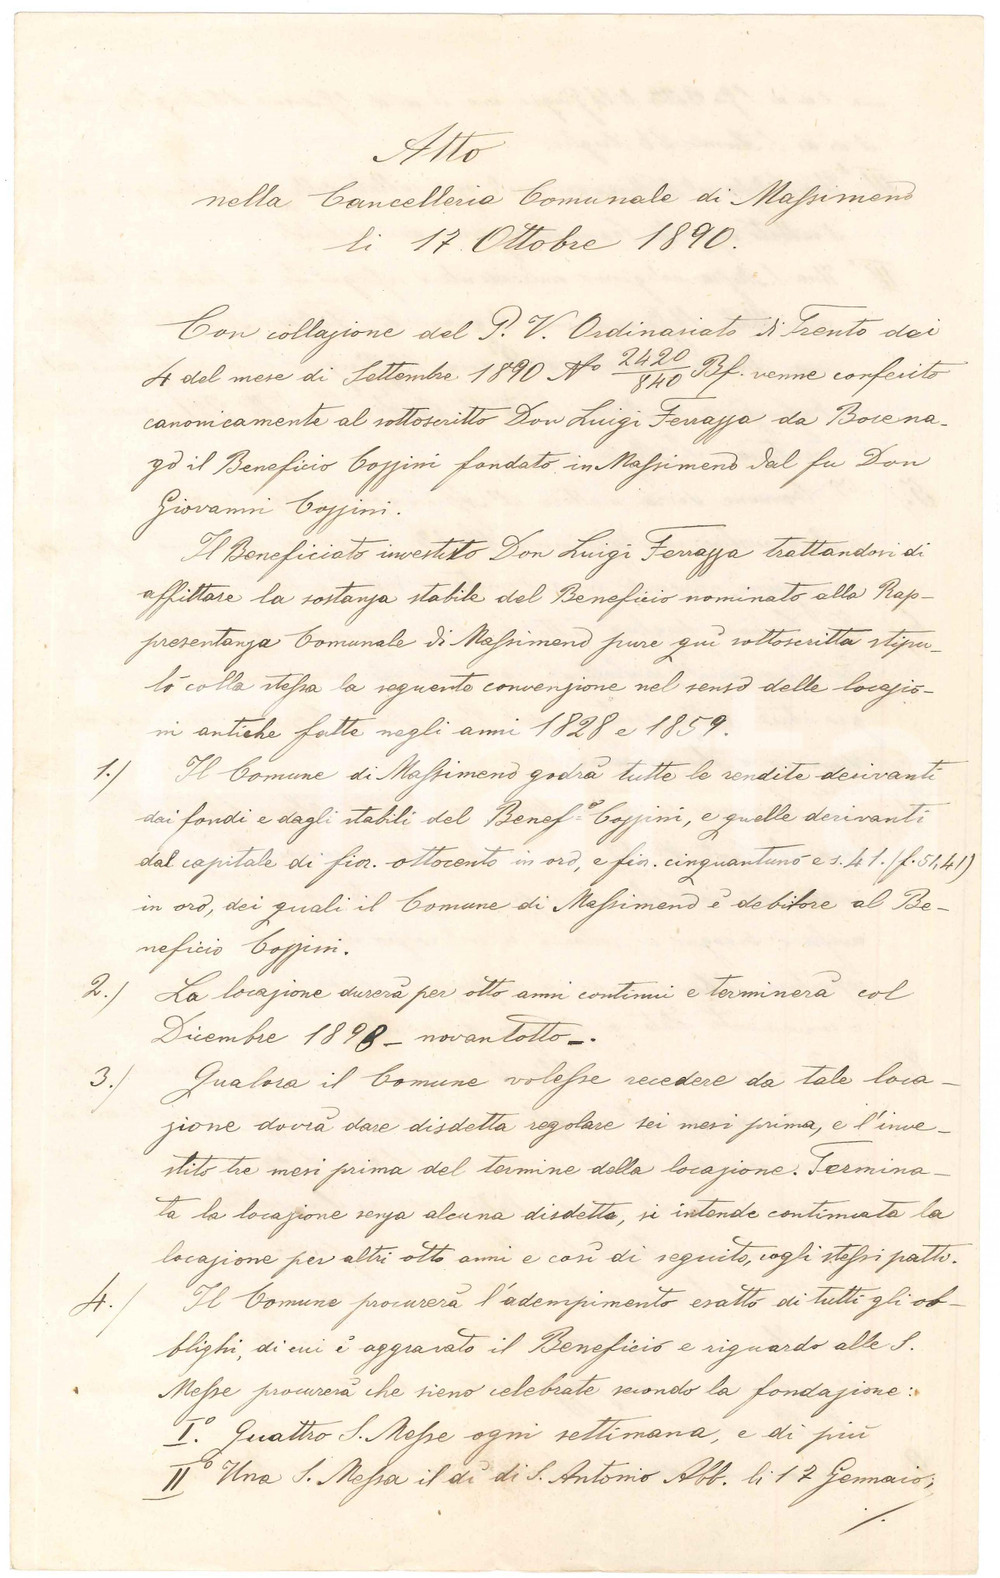 Atto
nella Cancelleria Comunale di Massimeno
li 17 Ottobre 1890.
Con collazione del P. V. Ordinariato di Trento dai
4 del mese di Settembre 1890 No 2420/840 Bf. venne conferito
canonicamente al sottoscritto Don Luigi Ferrazza da Bocena-
go il Beneficio Cozzini fondato in Massimeno dal fu Don
Giovanni Cozzini.
Il Beneficiato investito Don Luigi Ferrazza trattandosi di
affittare la sostanza stabile del Beneficio nominato alla Rap-
presentanza Comunale di Massimeno pure qui sottoscritta stipu-
lò colla stessa la seguente convenzione nel senso delle locazio-
ni antiche fatte negli anni 1828 e 1859.
1./ Il Comune di Massimeno godrà tutte le rendite derivanti
dai fondi e dagli stabili del Benef.o Cozzini, e quelle derivanti
dal capitale di fior. ottocento in oro, e fior. cinquantuno e s. 41. (f. 51,41)
in oro, dei quali il Comune di Massimeno è debitore al Be-
neficio Cozzini.
2./ La locazione durerà per otto anni continui e terminerà col
Dicembre 1898 - novantotto -.
3./ Qualora il Comune volesse recedere da tale loca-
zione dovrà dare disdetta regolare sei mesi prima, e l'inve-
stito tre mesi prima del termine della locazione. Termina-
ta la locazione senza alcuna disdetta, si intende continuata la
locazione per altri otto anni e così di seguito, cogli stessi patti.
4./ Il Comune procurerà l'adempimento esatto di tutti gli ob-
blighi, di cui è aggravato il Beneficio e riguardo alle S.
Messe procurerà che sieno celebrate secondo la fondazione:
I.o Quattro S. Messe ogni settimana, e di più
II.o Una S. Messa il dì di S. Antonio Abb. li 17 Gennaio;
./.